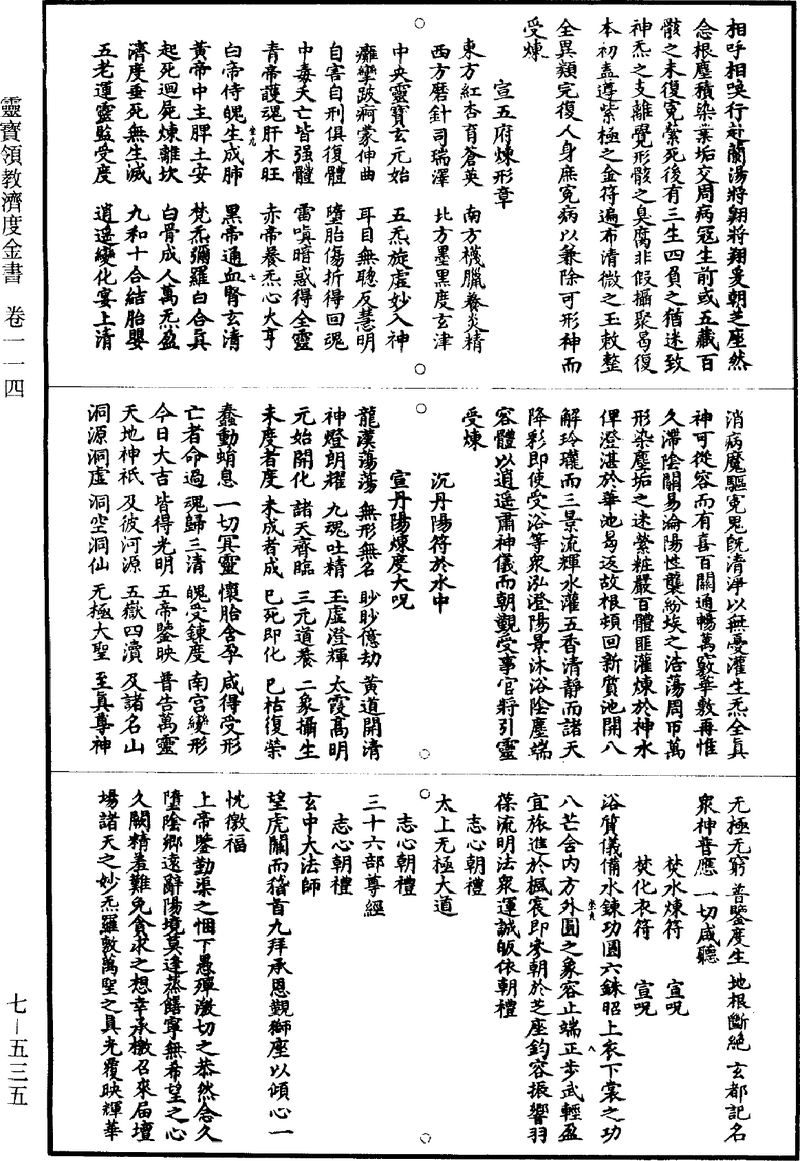 相呼相喚行赴蘭湯將翱將翔爰朝芝座然
念根塵積染業垢交周病冠生前或五藏百
骸之未復冤縈死後有三生四負之猶迷致
神炁之支離覺形骸之臭腐非假攝聚曷復
本初盍遵紫極之金符遍布清微之玉敕整
全異類完復人身庶冤病以兼除可形神而
受煉
宣五府煉形章
東方紅杏育蒼英　南方機臘養炎精
西方磨針司瑞澤　北方墨黑度玄津
中央靈寶玄元始　五炁旋虛妙入神
癱攣跛痾蒙伸曲　耳目無聰反慧明
自害自刑俱復體　墮胎傷折得回魂
中毒夭亡皆强體　雷嗔暗惑得全靈
青帝護魂肝木旺　赤帝養炁心火亨
白帝侍魄生成肺　黑帝通血腎玄清
黃帝中主脾土安　梵炁彌羅白合真
起死迴屍煉離坎　白骨成人萬炁盈
濟度垂死無生滅　九和十合結胎嬰
五老運靈監受度　逍遥變化宴上清
消病魔驅冤鬼既清淨以無憂灌生炁全真
神可從容而有喜百關通暢萬竅華敷再惟
久滯陰關易淪陽性襲紛埃之浩蕩周帀萬
形染塵垢之迷縈粧嚴百體匪灌煉於神水
俾澄湛於華池曷返故根頓回新質池開八
解玲瓏而三景流輝水灌五香清靜而諸天
降彩即使受浴等衆泓澄陽景沐浴陰塵端
容體以逍遥肅神儀而朝覲受事官將引靈
受煉
沉丹陽符於水中
宣丹陽煉度大呪
龍漢蕩蕩　無形無名　眇眇億劫　黃道開清
神燈朗耀　九魂吐精　玉虛澄輝　太霞高明
元始開化　諸天齊臨　三元道養　二象攝生
未度者度　未成者成　已死即化　已枯復榮
蠢動蛸息　一切冥靈　懷胎含孕　咸得受形
亡者命過　魂歸三清　魄受鍊度　南宮變形
今日大吉　皆得光明　五帝鑒映　普告萬靈
天地神祇　及彼河源　五嶽四瀆　及諸名山
洞源洞虛　洞空洞仙　无極大聖　至真尊神
无極无窮　普鑒度生　地根斷絕　玄都記名
衆神普應　一切咸聽
焚水煉符　宣呪
焚化衣符　宣呪
浴質儀備水鍊功圓六銖昭上衣下裳之功
八芒含內方外圓之象容止端正步武輕盈
宜旅進於楓宸即參朝於芝座鈞容振響羽
葆流明法衆運誠皈依朝禮
志心朝禮
太上无極大道
志心朝禮
三十六部尊經
志心朝禮
玄中大法師
望虎關而稽首九拜承恩觀獅座以傾心一
忱徼福
上帝鑒勤渠之悃下愚殫激切之恭然念久
墮陰鄉遠辭陽境莫逢蒸饍寧無希望之心
久闕精羞難免貪求之想幸承檄召來届壇
場諸天之妙炁羅敷萬聖之真光覆映輝華
靈寶領教濟度金書　卷一一四
七－五三五